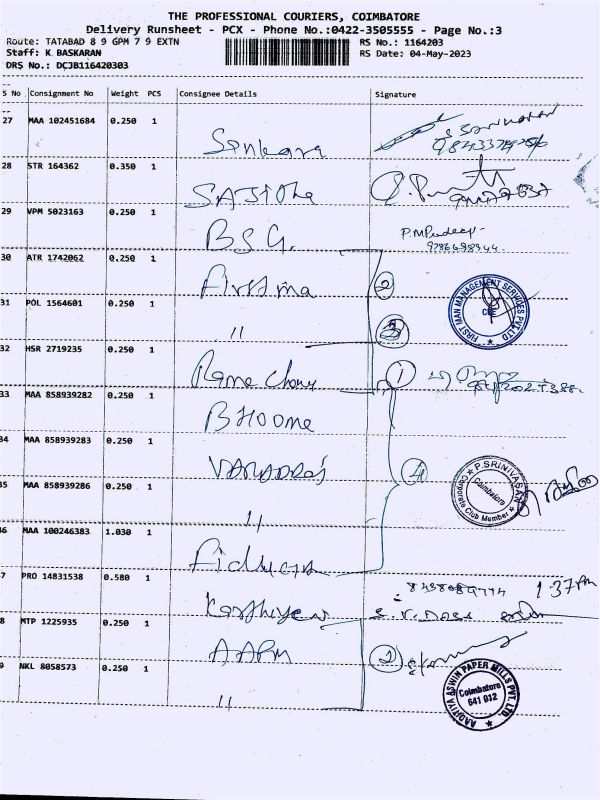 THE PROFESSIONAL COURIERS, COIMBATORE
Delivery Runsheet - PCX - Phone No.:0422-3505555 - Page No.:3
Route: TATABAD 8 9 GPM 7 9 EXTN RS No.: 1164203
Staff: K BASKARAN RS Date: 04-May-2023
DRS No.: DCJB116420303
S No Consignment No Weight PCS Consignee Details Signature
27 MAA 102451684 0.250 1
28 STR 164362 0.350 1
29 VPM 5023163 0.250 1 B.S.G. P.M Pradeep
30 ATR 1742062 0.250 1 ②
31 POL 1564601 0.250 1 " FIRST MAN MANAGEMENT SERVICES PVT LTD
32 HSR 2719235 0.250 1 ①
33 MAA 858939282 0.250 1 BHOOMA
34 MAA 858939283 0.250 1 VARADRAJ ④ P.SRINIVASAN Coimbatore Corporate Club Member
35 MAA 858939286 0.250 1 "
36 MAA 100246383 1.030 1
37 PRO 14831538 0.580 1 1.37 Pm
38 MTP 1225935 0.250 1 AAPM ②
39 NKL 8058573 0.250 1 " AADITYA ASWIN PAPER MILLS PVT. LTD. Coimbatore 641 012